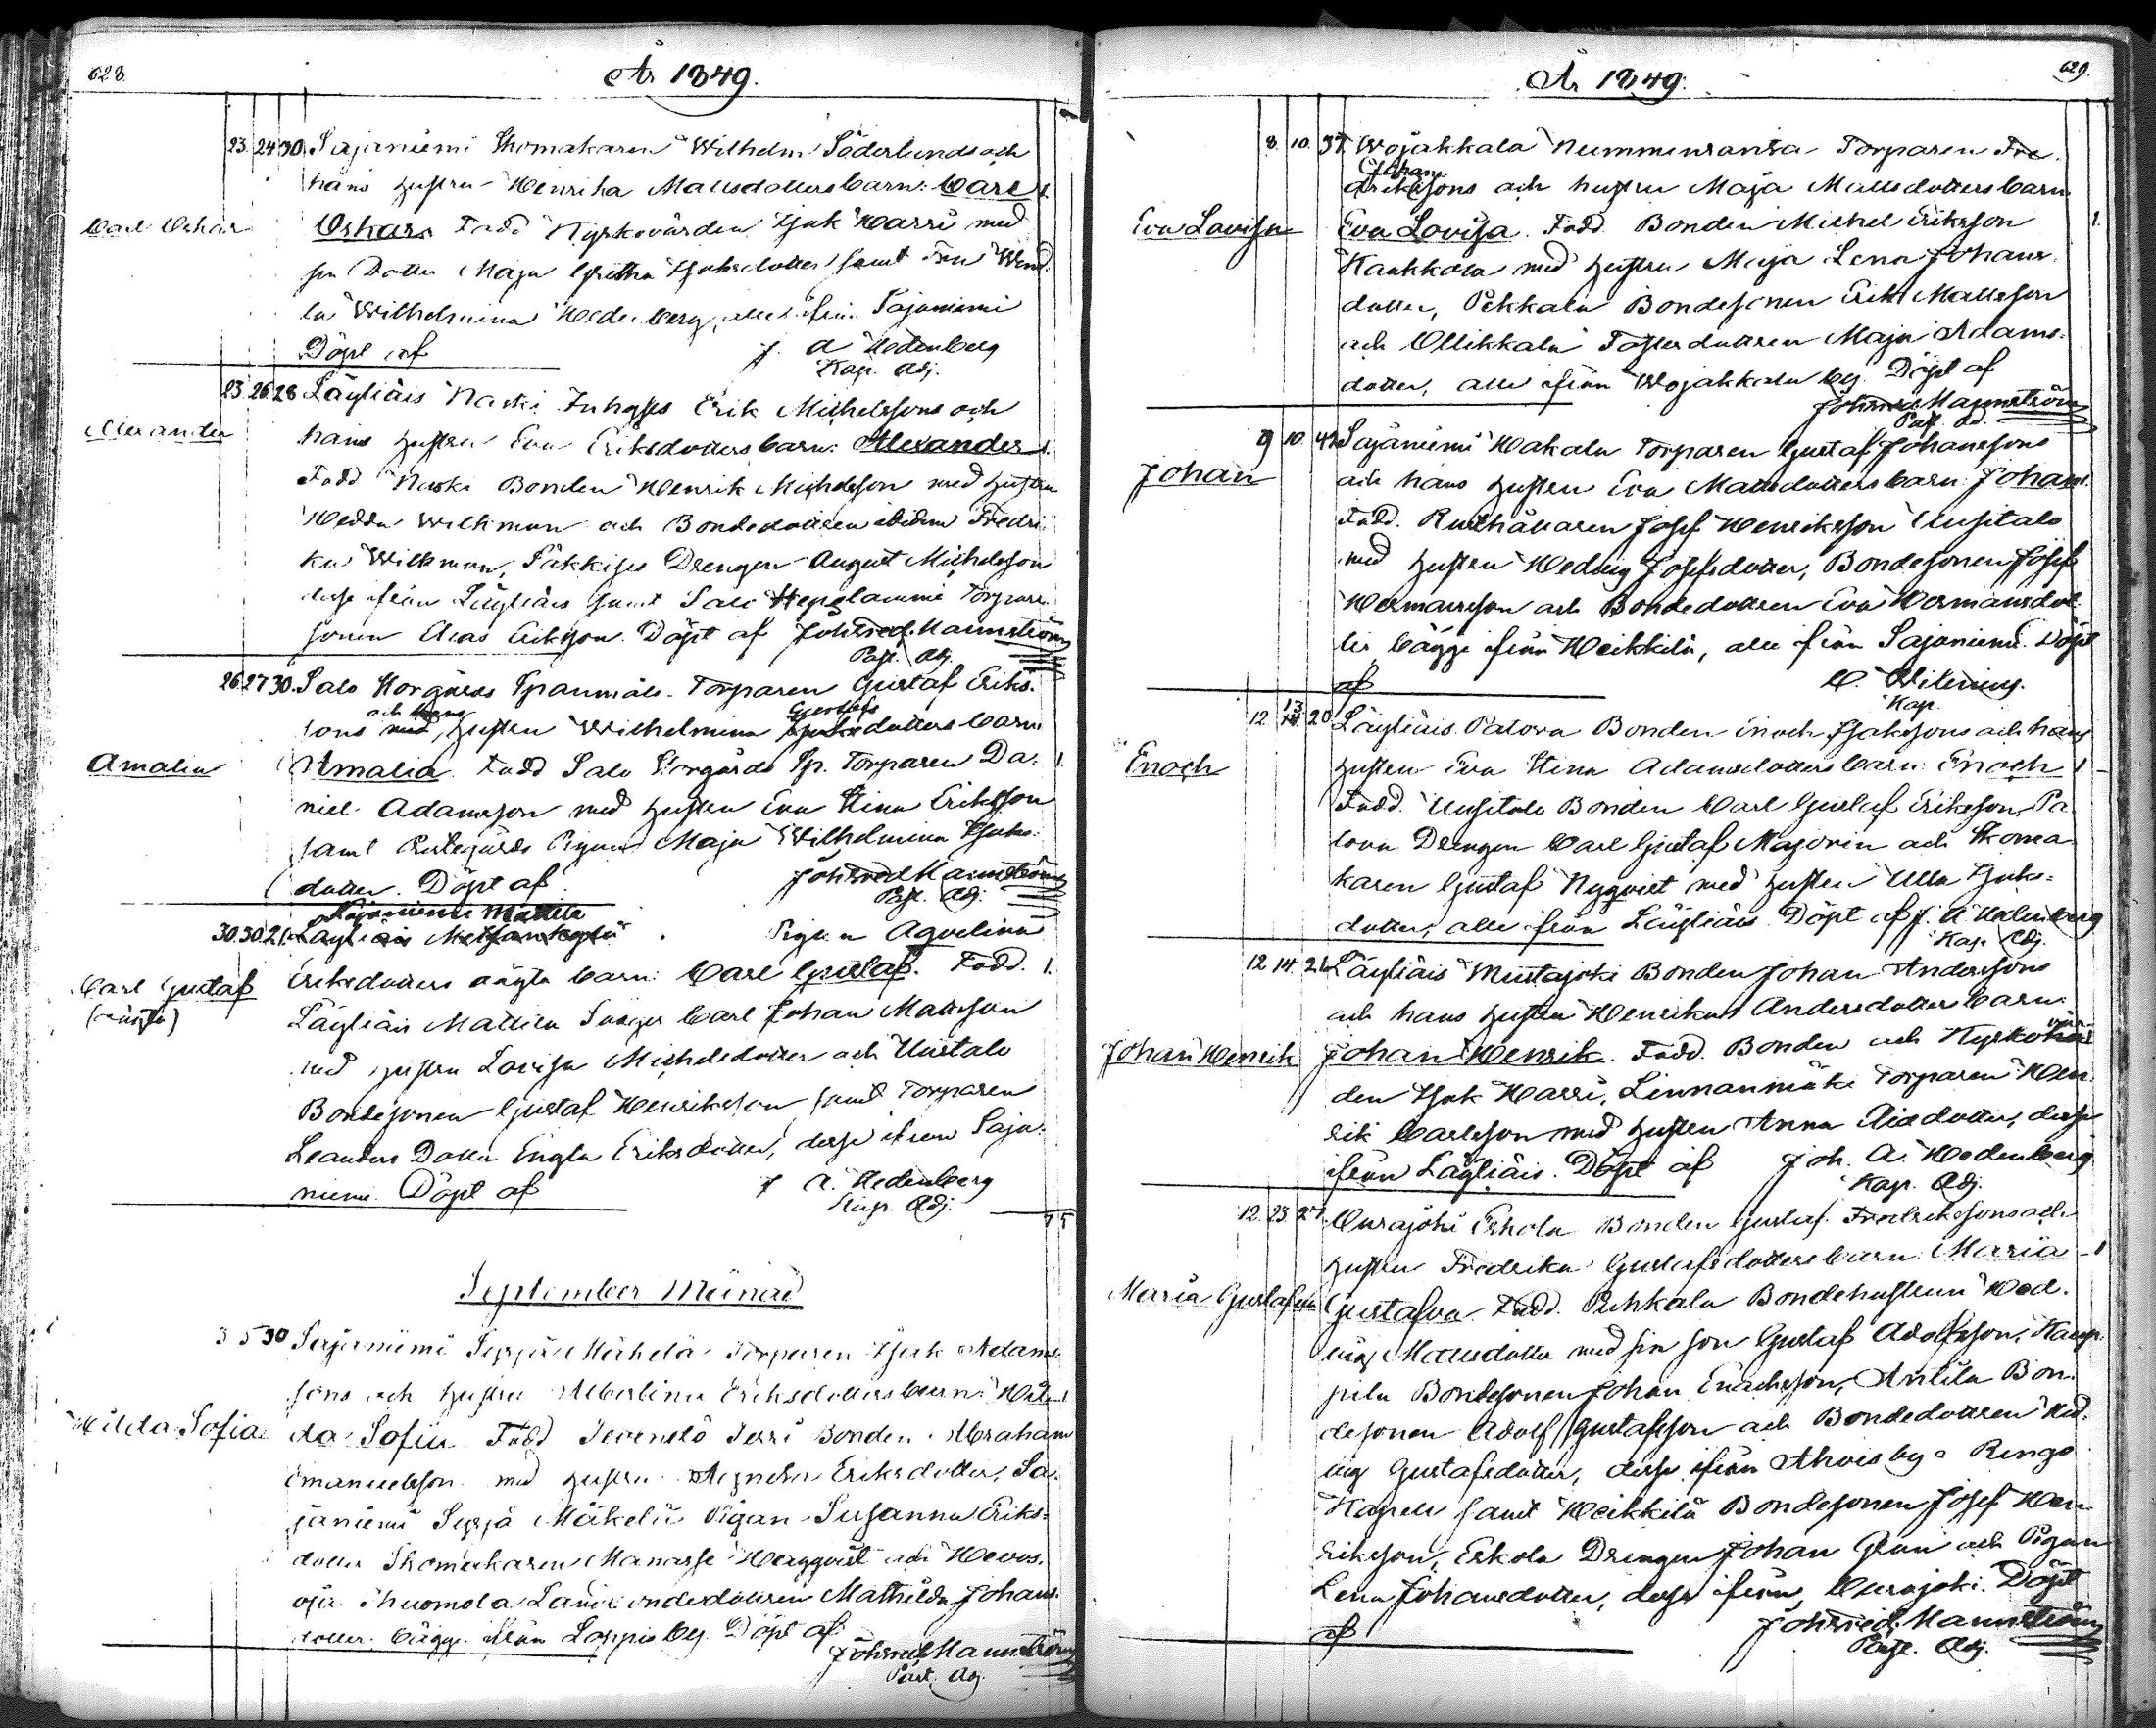 628.
År 1849.
23. 24 30. Sajaniemi Skomakaren Wilhelm Söderlunds och
hans hustru Henrika Mattsdotters barn: Carl 1.
Carl Oskar
Oskar. Fadd Kyrkovärden Isak Harri med
sin Dotter Maja Gretha Isaksdotter samt
la Wilhelmina Hedenberg, alle ifrån Sajaniemi
Döpt af J. A Hedenberg
Kap. Adj.
23 26 28 Läyliäis Naski Inhyses Erik Michelssons och
Alexander
hans hustru Eva Eriksdotters barn: Alexander 1.
Fadd Naski Bonden Henrik Michelsson med hustru
Hedda Wilkman och Bondedottren Fredri-
ka Wilkman, Drengen August Michelsson
desse ifrån Läyliäis samt Salo Torpare
sonen Eriksson. Döpt af Joh: Fred: Mannström
Past. Adj.
26 27 30. Salo Korgärds Torparen Gustaf Eriks-
och hans Gustafs
sons med hustru Wilhelmina dotters barn
Amalia
Amalia. Fadd Salo Korgårds Sp. Torparen Da- 1.
niel Adamsson med hustru Eva Stina Eriksson
samt Pigan Maja Wilhelmina Isaks-
dotter. Döpt af Joh: Fred: Mannström
Past. Adj.
Sajaniemi Mattila
30. 30 21. Läyliäis Pigan Aqvelina
Carl Gustaf
(oäkta)
Eriksdotters oägta barn: Carl Gustaf. Fadd. 1.
Läyliäis Mattila Carl Johan Mattsson
med hustru Lovisa Michelsdotter och Uusitalo
Bondesonen Gustaf Henriksson samt Torparen
Leanders Dotter Engla Eriksdotter, desse ifrån Saja-
niemi. Döpt af J A. Hedenberg
Kap. Adj.
7 5
September Månad
3 5 30 Sajaniemi Syrjä Mäkelä Torparen Isak Adams-
sons och hustru Albertina Eriksdotters barn: Hil- 1
Hilda Sofia
da Sofia Fadd Bonden Abraham
Emanuelsson med hustru Eriksdotter, Sa-
janiemi Syrjä Mäkelä Pigan Susanna Eriks-
dotter Skomakaren Manasse och Hevos-
oja Mathilda Johans-
dotter. bägge ifrån Loppis by. Döpt af
Joh: Fred: Mannström
Past. Adj.
629.
År 1849.
8. 10. 37 Wojakkala Nummenranta Torparen Fre-
Johan
drikssons och hustru Maja Mattsdotters barn
Eva Lovisa
Eva Lovisa. Fadd. Bonden Michel Eriksson 1.
Kaukkola med hustru Maja Lena Johans-
dotter, Pekkala Bondesonen Erik Mattsson
och Ollikkala Maja Adams-
dotter, alle ifrån Wojakkala by. Döpt af
Joh: Fred: Mannström
Past. Ad.
9 10. 43 Sajaniemi Hakala Torparen Gustaf Johanssons
Johan
och hans hustru Eva Mattsdotters barn Johan 1.
Fadd. Rusthållaren Josef Henriksson Uusitalo
med hustru Hedvig Josefsdotter, Bondesonen Josef
Hermansson och Bondedottren Eva Hermansdot-
ter bägge ifrån Heikkilä, alle ifrån Sajaniemi. Döpt
af C. Wilenius.
Kap.
13
12 14 20 Läyliäis Palova Bonden Enoch Isakssons och hans
Enoch
hustru Eva Stina Adamsdotters barn: Enoch 1
Fadd. Uusitalo Bonden Carl Gustaf Eriksson, Pa-
lova Drengen Carl Gustaf Majorin och Skoma-
karen Gustaf Nyqvist med hustru Ulla Isaks-
dotter, alle ifrån Läyliäis. Döpt af J. A. Hedenberg
Kap. Adj.
12 14. 21. Läyliäis Mustajoki Bonden Johan Anderssons
och hans hustru Henrika Andersdotters barn:
Johan Henrik
Johan Henrik. Fadd. Bonden och Kyrkovär-
den Isak Harri, Linnanmäki Torparen Hen-
rik Carlsson med hustru Anna dotter, desse
ifrån Läyliäis. Döpt af Joh. A. Hedenberg
Kap. Adj.
12. 23. 27. Ourajoki Eskola Bonden Gustaf Fredrikssons och
hustru Fredrika Gustafsdotters barn: Maria 1
Maria Gustafva
Gustafva. Fadd. Puhkala Bondehustrun Hed-
vig Mattsdotter med sin son Gustaf Adolfsson, Kaup-
pila Bondesonen Johan Enochsson, Antila Bon-
desonen Adolf Gustafsson och Bondedottren Hed-
vig Gustafsdotter, desse ifrån Ahois by i Rengo
Kapell samt Heikkilä Bondesonen Josef Hen-
riksson, Eskola Drengen Johan och Pigan
Lena Johansdotter, desse ifrån Ourajoki. Döpt
af Joh: Fred: Mannström
Past. Adj.